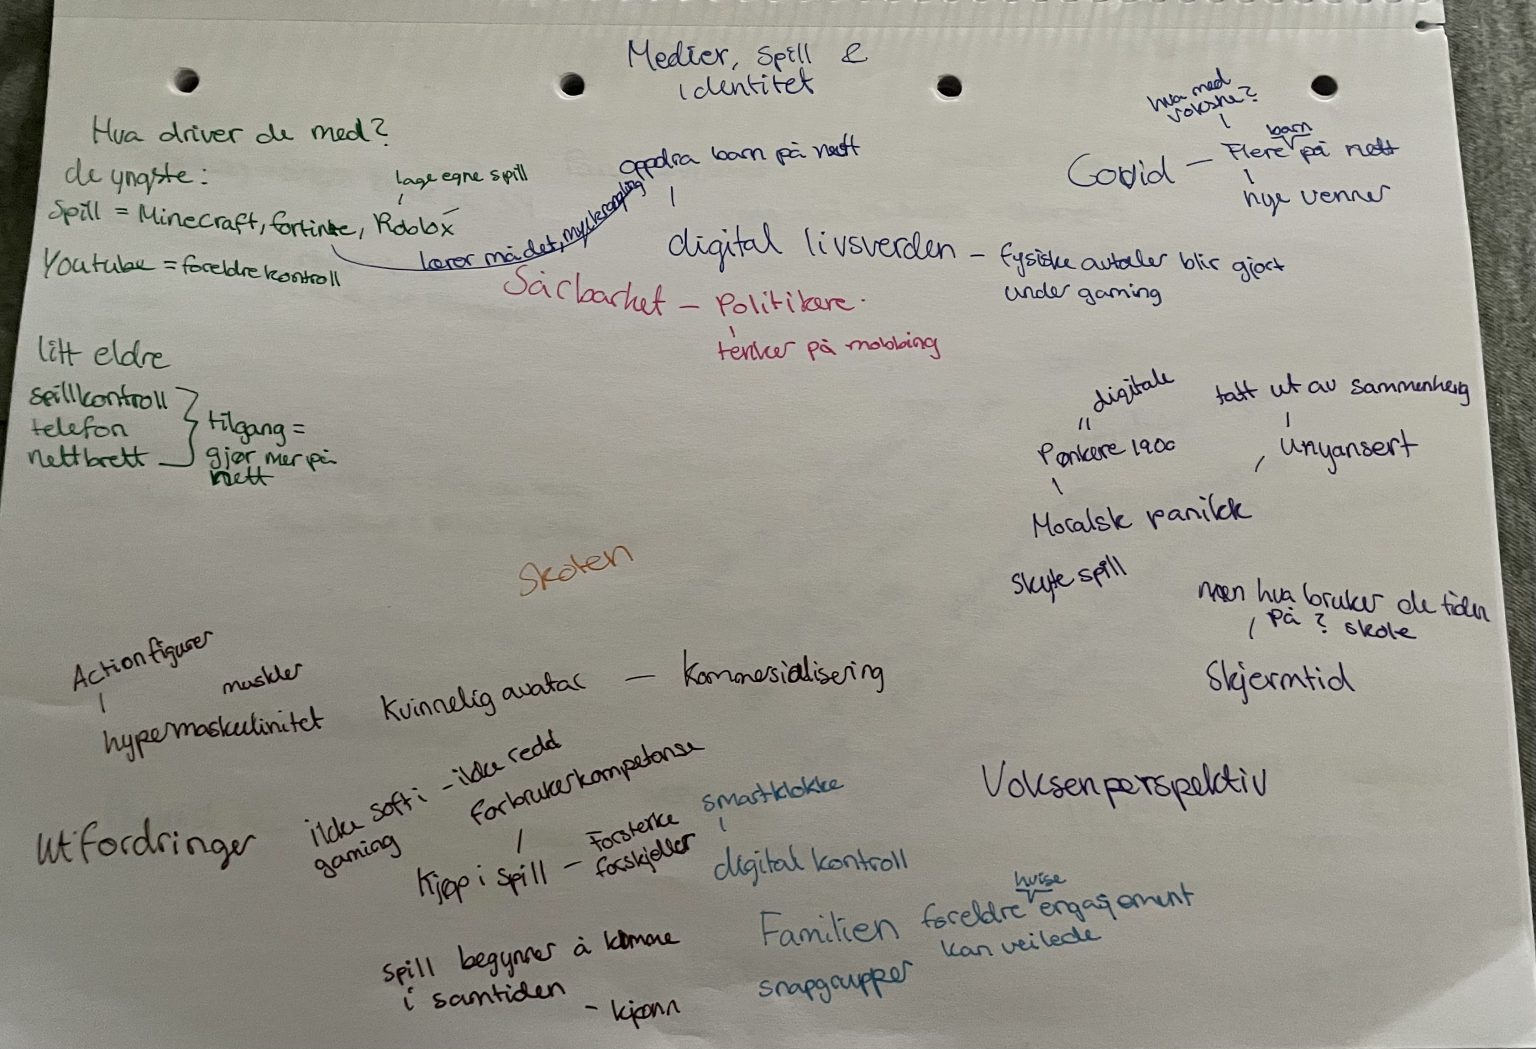 Medier, spill &
identitet
Hva driver de med?
de yngste:
lage egne spill
Spill = Minecraft, fortinte, Roblox
Youtube = foreldrekontroll
lærer må det, mye krangling
oppdra barn på nett
digital livsverden - fysiske avtaler blir gjort
under gaming
Sårbarhet - Politikere
tenker på mobbing
hva med
voksne?
barn
Covid - Flere på nett
nye venner
litt eldre
spillkontroll
telefon
nettbrett
tilgang =
gjør mer på
nett
digitale
Pønkere 1900
tatt ut av sammenheng
Unyansert
Moralsk panikk
Skyte spill
men hva bruker de tiden
på? skole
Skjermtid
Voksenperspektiv
Skolen
Actionfigurer
muskler
hypermaskulinitet
Kvinnelig avatar - Kommersialisering
Utfordringer
ikke soft i - ikke redd
gaming
forbrukerkompetanse
Kjøp i spill - Forsterke
forskjeller
spill begynner å komme
i samtiden
- kjønn
smartklokke
digital kontroll
hvise
Familien foreldre engasjement
kan veilede
snapgrupper